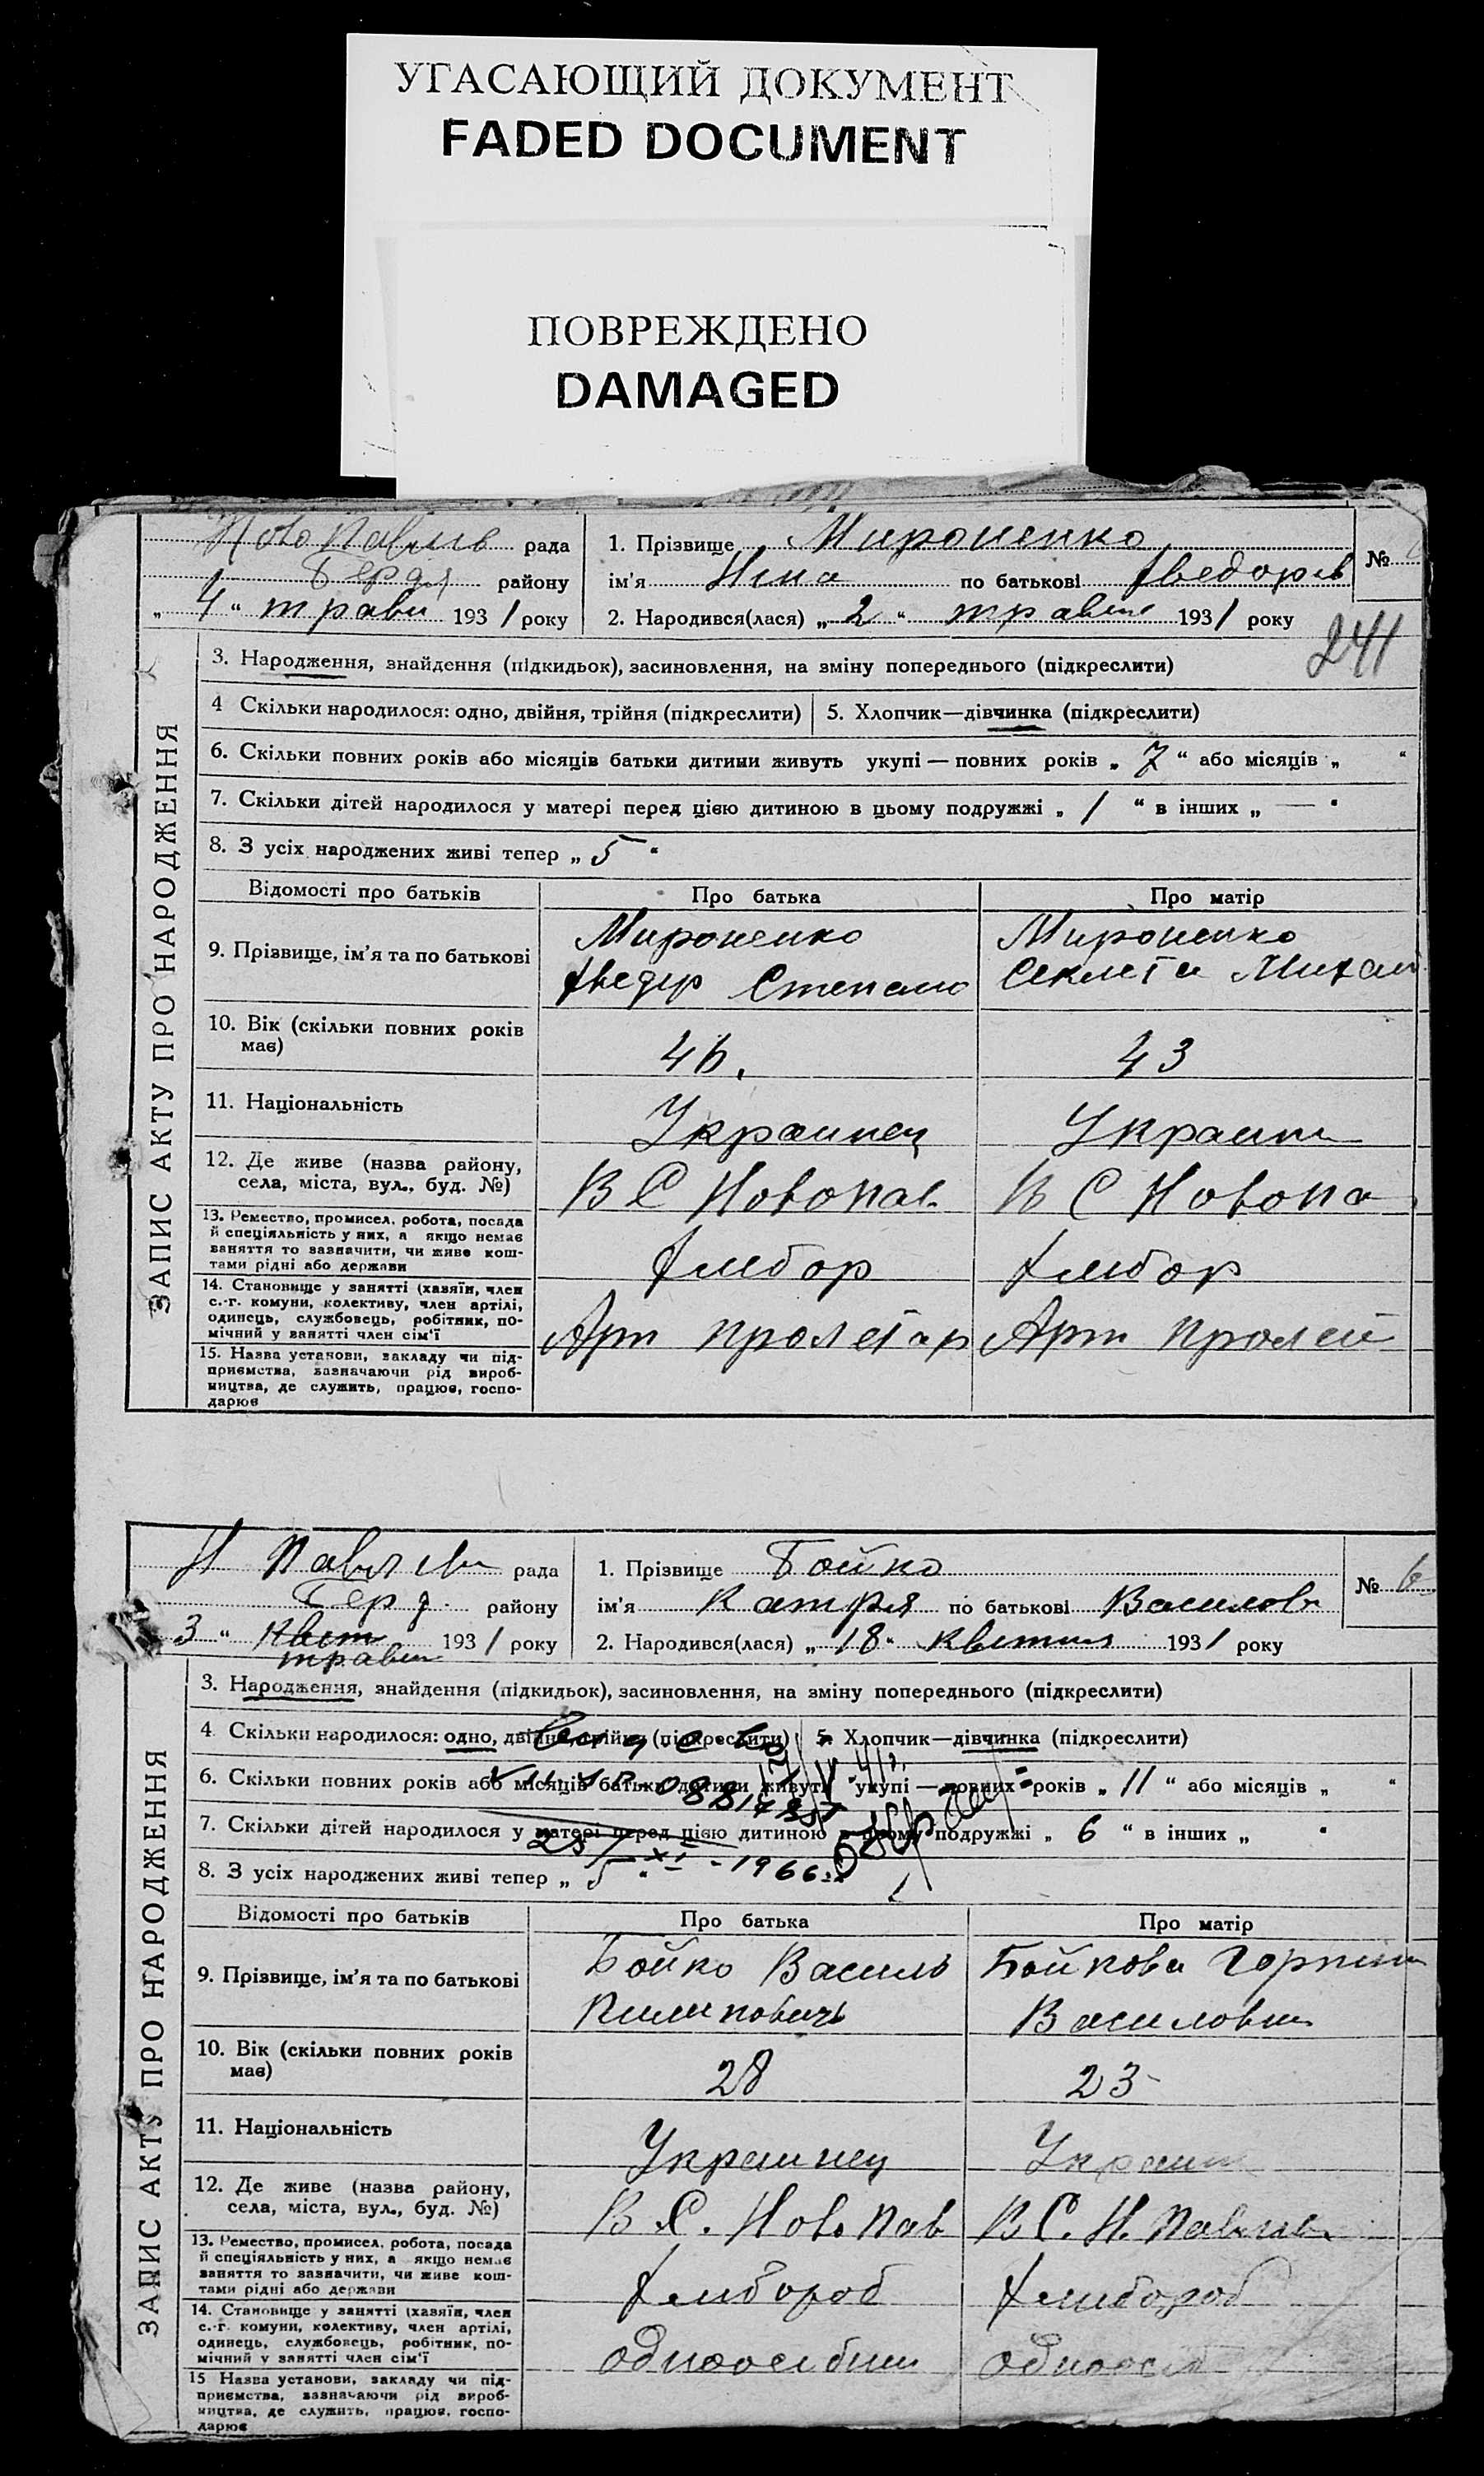 УГАСАЮЩИЙ ДОКУМЕНТ
FADED DOCUMENT
ПОВРЕЖДЕНО
DAMAGED
ЗАПИС АКТУ ПРО НАРОДЖЕННЯ
рада
района
„ 4 “ трави 1931 року
1. Прізвище Мироненко
ім'я Нина по батькові Хведорів
2. Народився(лася) „ 2 “ травня 1931 року
№
241
3. Народження, знайдення (підкидьок), засиновлення, на зміну попереднього (підкреслити)
4 Скільки народилося: одно, двійня, трійня (підкреслити) 5. Хлопчик—дівчинка (підкреслити)
6. Скільки повних років або місяців батьки дитини живуть укупі — повних років „ 7 “ або місяців „ “
7. Скільки дітей народилося у матері перед цією дитиною в цьому подружжі „ 1 “ в інших „ — “
8. З усіх народжених живі тепер „ 5 “
Відомості про батьків Про батька Про матір
9. Прізвище, ім'я та по батькові
Мироненко Мироненко
Хведір Степано Секлета Михай
10. Вік (скільки повних років має) 46. 43
11. Національність Украинец Украин
12. Де живе (назва району, села, міста, вул., буд. №) В С Новопав. В С Новопа
13. Ремество, промисел, робота, посада
й спеціяльність у них, а якщо немає
заняття то зазначити, чи живе кош-
тами рідні або держави
Хлибор Хлибор
14. Становище у занятті (хазяїн, член
с.-г. комуни, колективу, член артілі,
одинець, службовець, робітник, по-
мічний у занятті член сім'ї
Арт пролетар Арт пролет
15. Назва установи, закладу чи під-
приємства, зазначаючи рід вироб-
ництва, де служить, працює, госпо-
дарює
ЗАПИС АКТУ ПРО НАРОДЖЕННЯ
Н Павлив рада
Берд. району
3 “ Квит 1931 року
травня
1. Прізвище Бойко
ім'я Катря по батькові Василов
2. Народився(лася) „ 18 “ Квитня 1931 року
№ 6
3. Народження, знайдення (підкидьок), засиновлення, на зміну попереднього (підкреслити)
4 Скільки народилося: одно, двійня, трійня (підкреслити) 5. Хлопчик—дівчинка (підкреслити)
6. Скільки повних років або місяців батьки дитини живуть укупі — повних років „ 11 “ або місяців „ “
7. Скільки дітей народилося у матері перед цією дитиною в цьому подружжі „ 6 “ в інших „ “
25/XI-1966
8. З усіх народжених живі тепер „ 5 “
Відомості про батьків Про батька Про матір
9. Прізвище, ім'я та по батькові
Бойко Василь Бойкова Горпин
Пилиповичь Василовна
10. Вік (скільки повних років має) 28 23
11. Національність Украинец Украин
12. Де живе (назва району, села, міста, вул., буд. №) В С.Ново Пав В С. Н. Павлив
13. Ремество, промисел, робота, посада
й спеціяльність у них, а якщо немає
заняття то зазначити, чи живе кош-
тами рідні або держави
Хлибороб Хлибороб
14. Становище у занятті (хазяїн, член
с.-г. комуни, колективу, член артілі,
одинець, службовець, робітник, по-
мічний у занятті член сім'ї
одноосібни одноосіб
15 Назва установи, закладу чи під-
приємства, зазначаючи рід вироб-
ництва, де служить, працює, госпо-
дарює